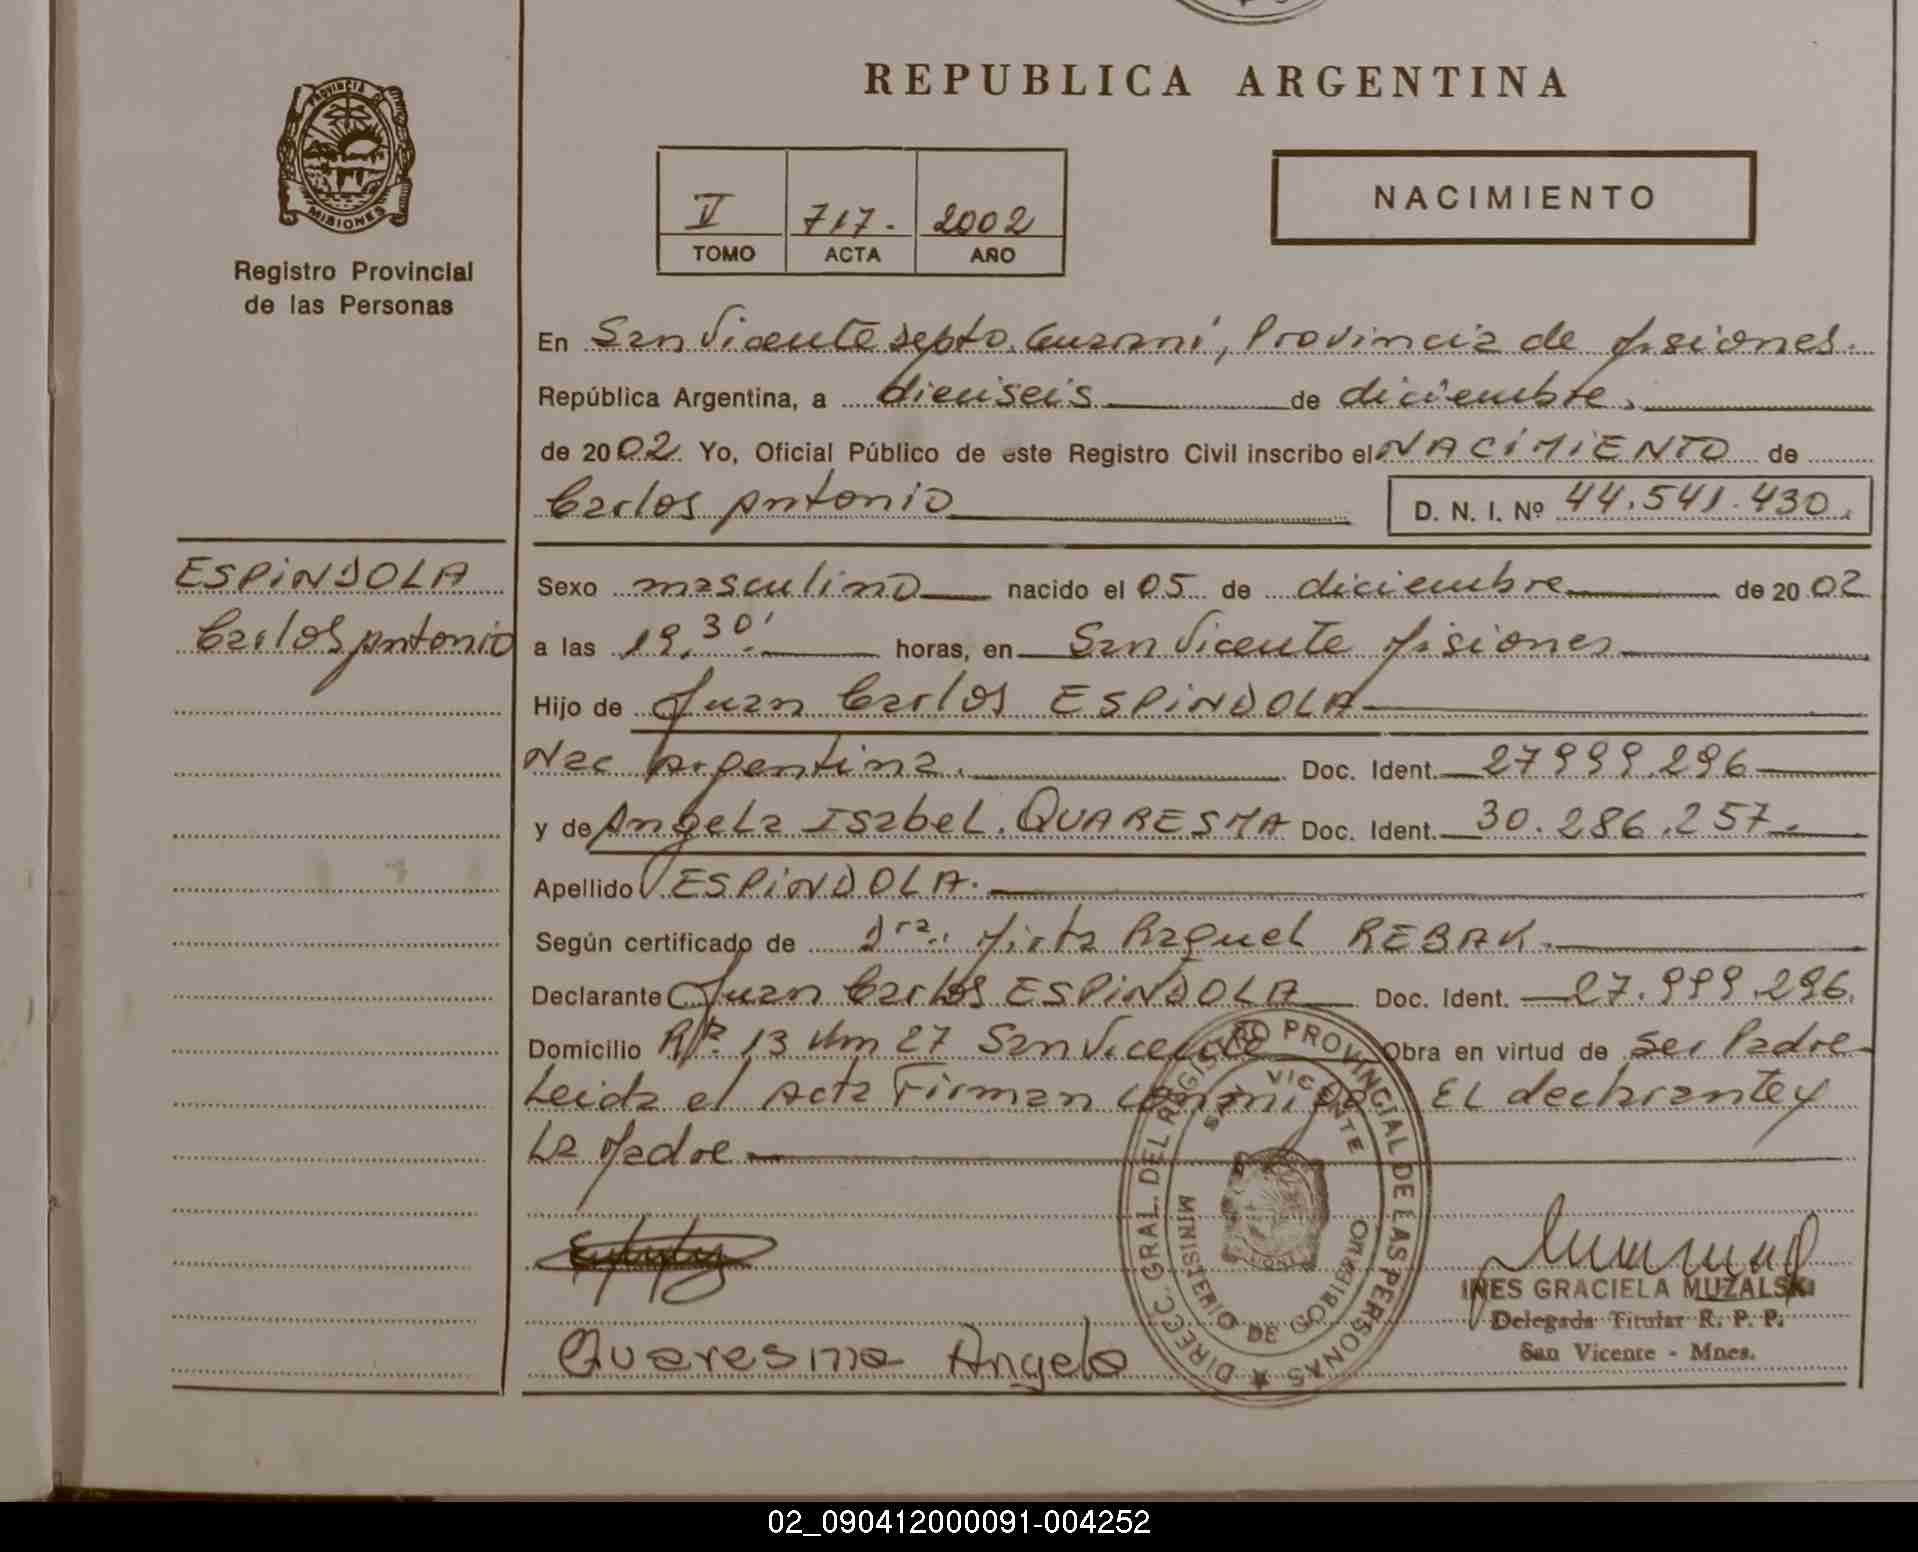 REPUBLICA ARGENTINA
PROVINCIA DE
MISIONES
Registro Provincial
de las Personas
V 717. 2002
TOMO ACTA AÑO
NACIMIENTO
En San Vicente Depto. Guaraní, Provincia de Misiones.
República Argentina, a dieciseis de diciembre.
de 2002 Yo, Oficial Público de este Registro Civil inscribo el NACIMIENTO de
Carlos Antonio D. N. I. Nº 44.541.430.
ESPINDOLA
Carlos Antonio
Sexo masculino nacido el 05 de diciembre de 2002
a las 19,30' horas, en San Vicente Misiones
Hijo de Juan Carlos ESPINDOLA
Nac Argentina. Doc. Ident. 27999.296
y de Angela Isabel. QUARESMA Doc. Ident. 30.286.257.
Apellido ESPINDOLA.
Según certificado de Dra. Mirta Raquel REBAK.
Declarante Juan Carlos ESPINDOLA Doc. Ident. 27.999.296.
Domicilio 13 Km 27 San Vicente Obra en virtud de ser Padre
Leida el Acta Firman conmigo El declarante y
La Madre
DIRECC. GRAL. DEL REGISTRO PROVINCIAL DE LAS PERSONAS
SAN VICENTE
MINISTERIO DE GOBIERNO
Quaresma Angela
INES GRACIELA MUZALSKI
Delegada Titular R. P. P.
San Vicente - Mnes.
02_090412000091-004252